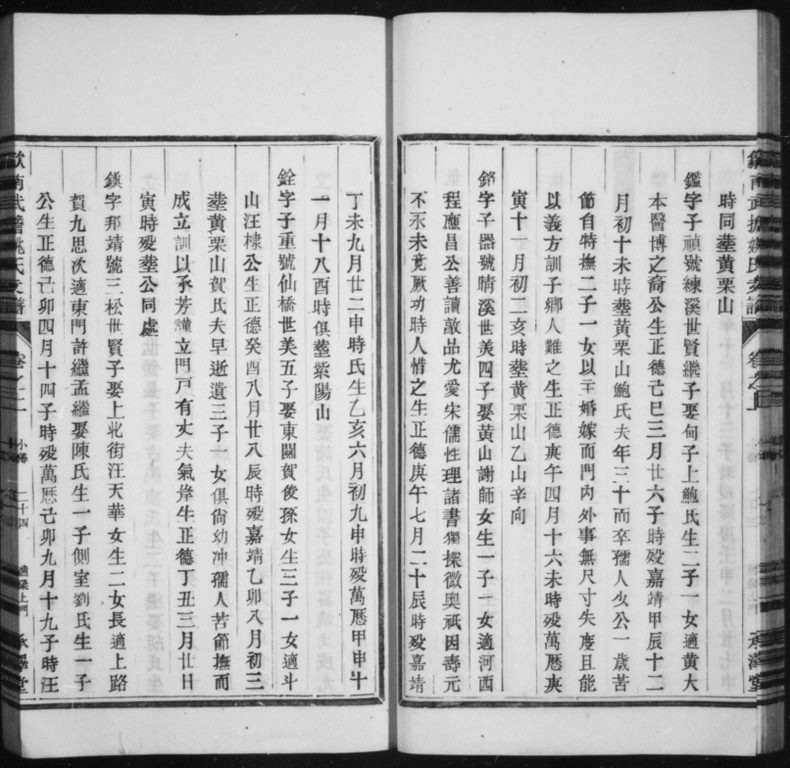 時同塟黄栗山
鑑字子禎號練溪世賢繼子娶甸子上鮑氏生二子一女適黄大
本醫博之裔公生正德己巳三月廿六子時殁嘉靖甲辰十二
月初十未時塟黄栗山鮑氏夫年三十而卒孺人少公一歲苦
節自特撫二子一女以至婚嫁而門内外事無尺寸失度且能
以義方訓子鄉人難之生正德庚午四月十六未時殁萬厯庚
寅十一月初二亥時塟黄栗山乙山辛向
字子器號晴溪世美四子娶黄山謝師女生一子一女適河西
程應昌公善讀敵品尤愛宋儒性理諸書獨探微奥祇因壽元
不永未竟厥功時人惜之生正德庚午七月二十辰時殁嘉靖
丁未九月廿二申時氏生乙亥六月初九申時殁萬厯甲申十
一月十八酉時俱塟紫陽山
銓字子重號仙橋世美五子娶東關賀俊孫女生三子一女適斗
山汪棣公生正德癸酉八月廿八辰時殁嘉靖乙卯八月初三
塟黄栗山賀氏夫早逝遺三子一女俱尙幼冲孺人苦節撫而
成立訓以承芳謹立門戸有丈夫氣偉生正德丁丑三月廿日
寅時殁塟公同處
鎮字邦靖號三松世賢子娶上北街汪天華女生二女長適上路
賀九思次適東門許繼孟繼娶陳氏生一子側室劉氏生一子
公生正德己卯四月十四子時殁萬厯己卯九月十九子時汪
歙南武擔姚氏支譜
卷之二
二十四
承澤堂